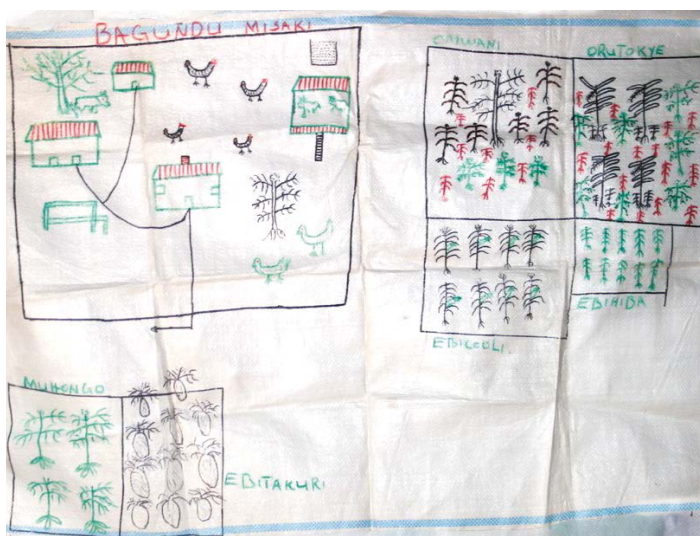 BAGUNDU MISAKI
ORUTOKYE
EBIHIBA
EBICOOLI
MUHONGO
EBITAKURI